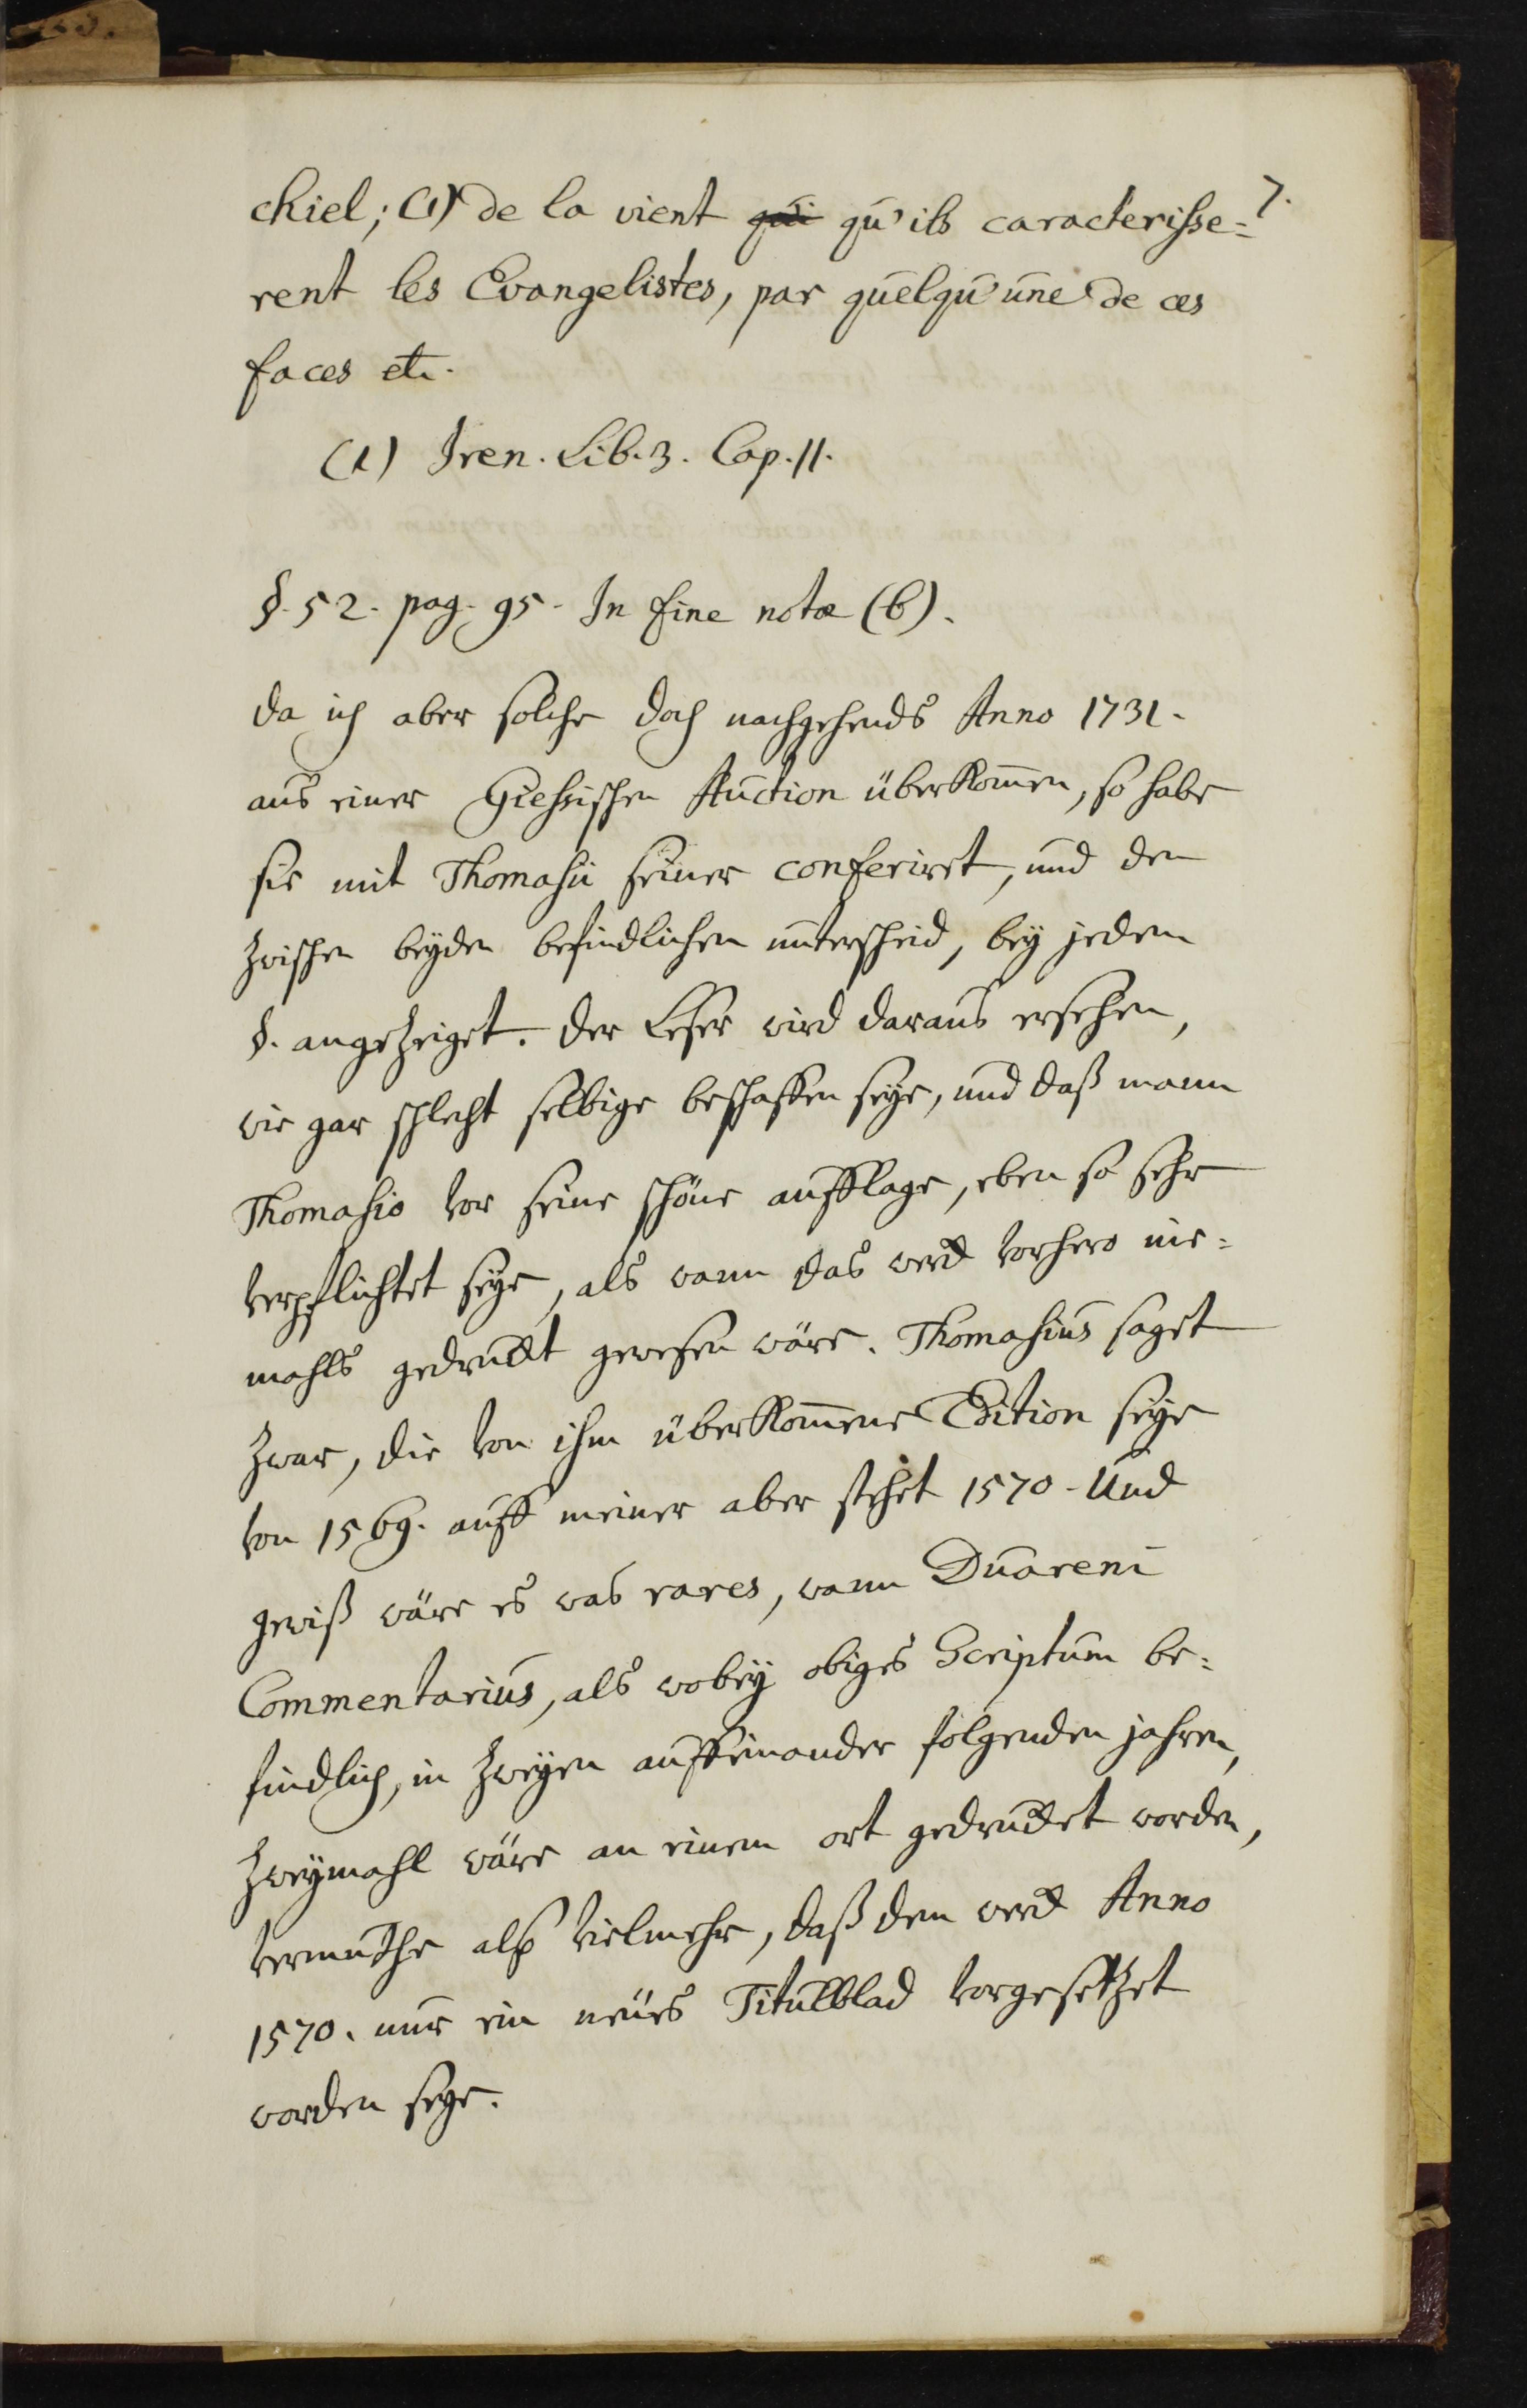 7.
chiel; (1) de la vient qui qu'ils caracterisse=
rent les Evangelistes, par quelqu'une de ces
faces etc.
(1) Iren. Lib. 3. Cap. 11.
§. 52. pag. 95. In fine notæ (b).
da ich aber solche doch nachgehends Anno 1731.
aus einer Giessischen Auction überkom̄en, so habe
sie mit Thomasii seiner conferiret, und den
zwischen beyden befindlichen unterscheid, bey jedem
§. angezeiget. Der Leser wird daraus ersehen,
wie gar schlecht selbige beschaffen seye, und daß mann
Thomasio vor seine schöne aufflage, eben so sehr
verpflichtet seye, als wann das werck vorhero nie=
mahls gedruckt gewesen wäre. Thomasius saget
zwar, die von ihm überkom̄ene Edition seye
von 1569. auff meiner aber stehet 1570. Und
gewiß wäre es was rares, wann Duareni
Commentarius, als wobey obiges Scriptum be=
findlich, in zweyen auffeinander folgenden jahren,
zweymahl wäre an einem ort gedrucket worden,
vermuthe also vielmehr, daß dem werck Anno
1570. nur ein neues Titulblad vorgesetzet
worden seye.